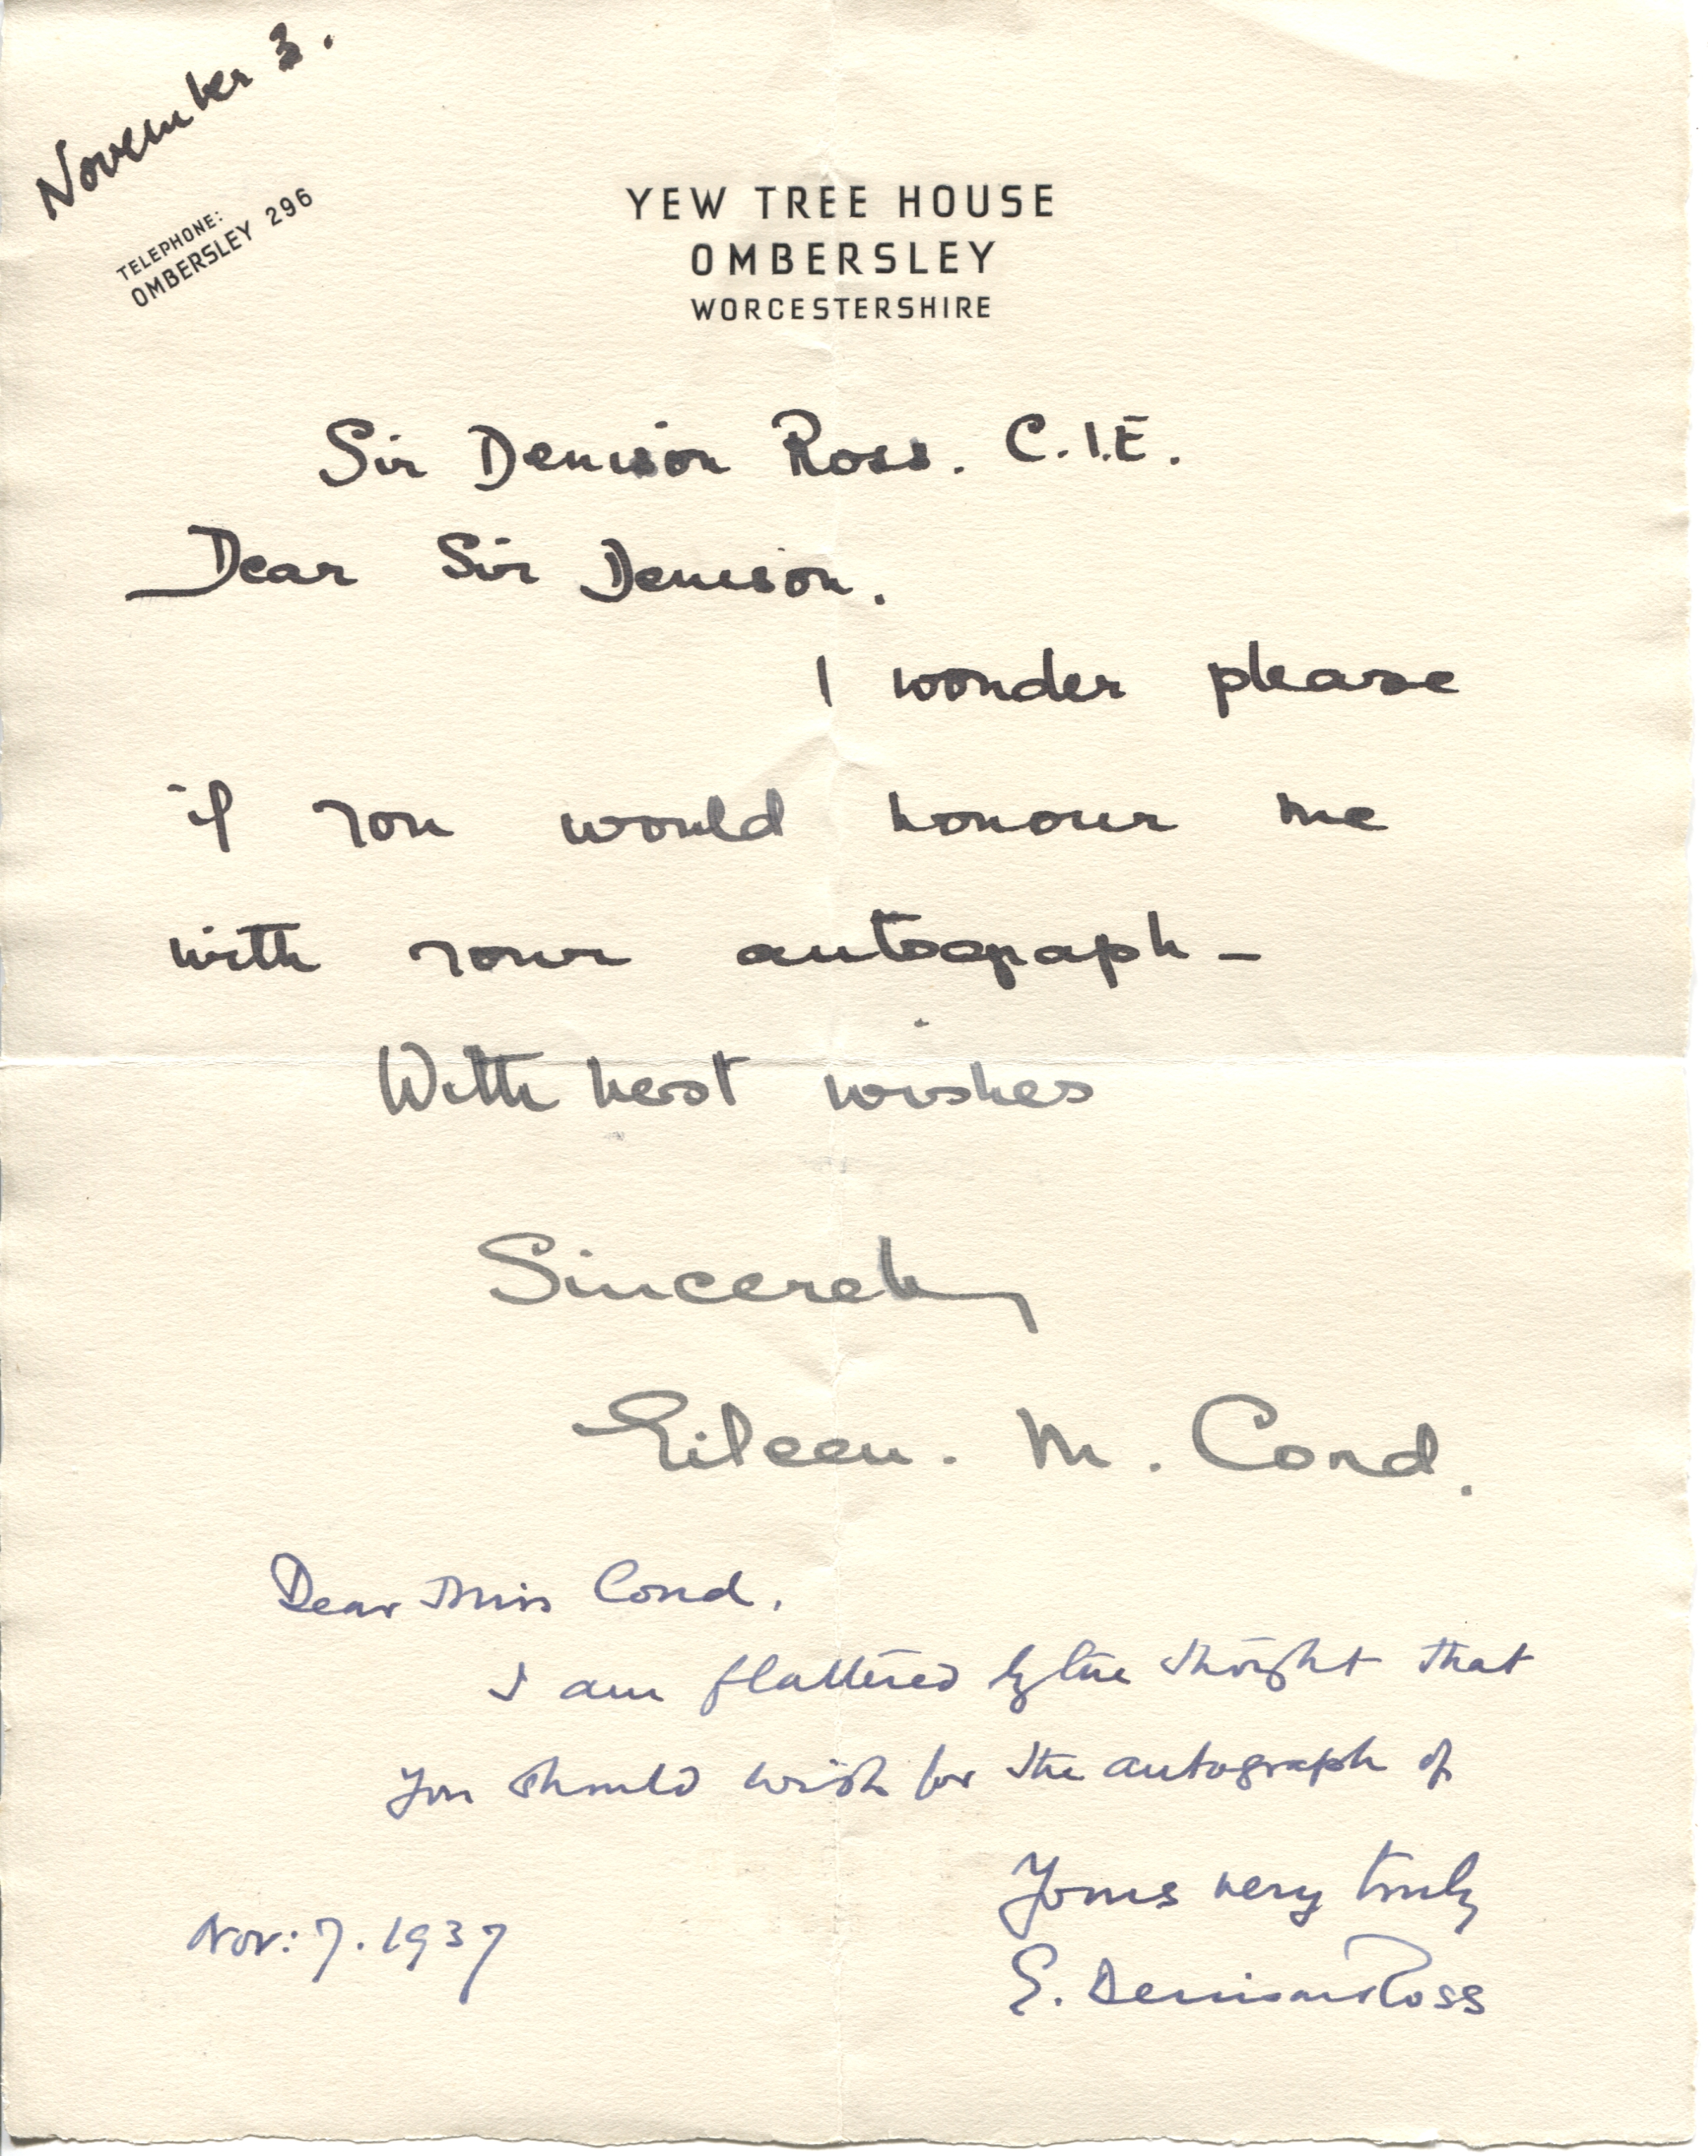 November 3.
TELEPHONE:
OMBERSLEY 296
YEW TREE HOUSE
OMBERSLEY
WORCESTERSHIRE
Sir Denison Ross. C.I.E.
Dear Sir Denison.
I wonder please
if you would honour me
with your autograph -
With best wishes
Sincerely
Eileen. M. Cond.
Dear Miss Cond,
I am flattered by the thought that
you should wish for the autograph of
Yours very truly
E. Denison Ross
Nov: 7. 1937